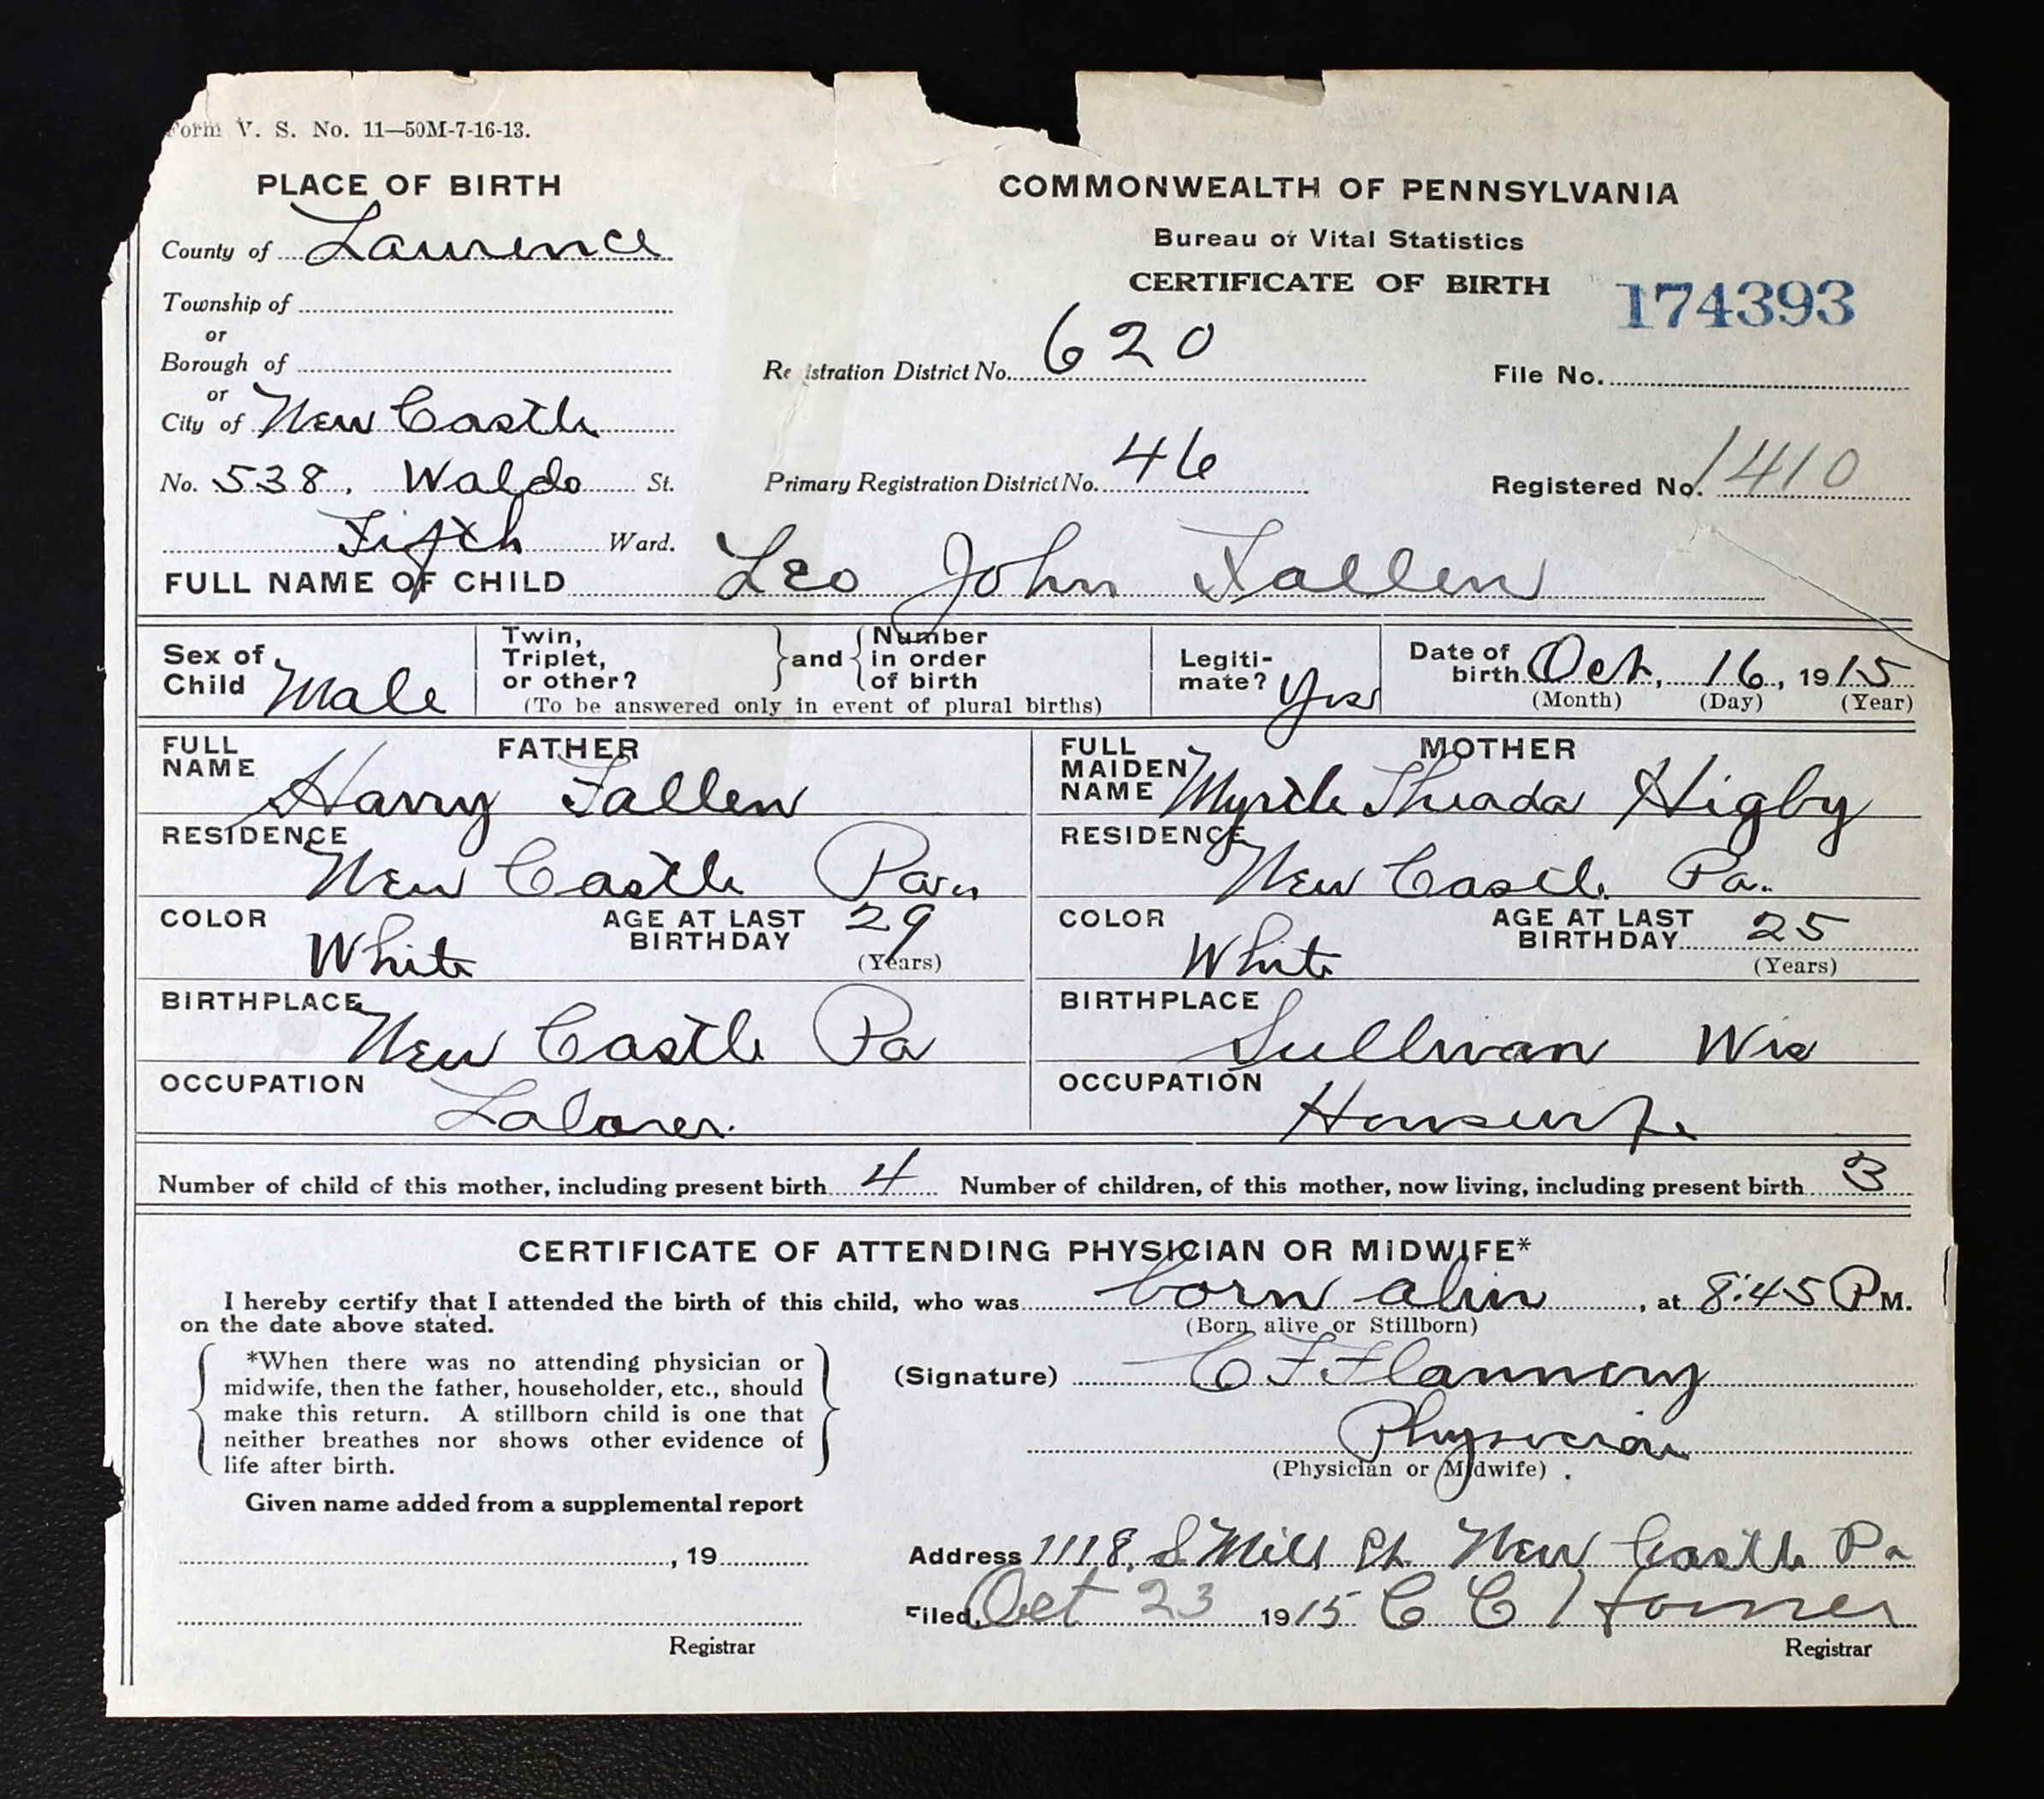 Form V. S. No. 11—50M-7-16-13.
PLACE OF BIRTH
County of Lawrence
Township of
or
Borough of
or
City of New Castle
No. 538, Waldo St.
Fifth Ward.
COMMONWEALTH OF PENNSYLVANIA
Bureau of Vital Statistics
CERTIFICATE OF BIRTH
174393
Registration District No. 620
File No.
Primary Registration District No. 46
Registered No. 1410
FULL NAME OF CHILD Leo John Fallen
Sex of Child Male
Twin, Triplet, or other? } and { Number in order of birth
(To be answered only in event of plural births)
Legiti-mate? Yes
Date of birth Oct, 16, 1915
(Month) (Day) (Year)
FATHER
FULL NAME Harry Fallen
RESIDENCE New Castle Pa
COLOR White
AGE AT LAST BIRTHDAY 29
(Years)
BIRTHPLACE New Castle Pa
OCCUPATION Laborer.
MOTHER
FULL MAIDEN NAME Myrtle Higby
RESIDENCE New Castle Pa.
COLOR White
AGE AT LAST BIRTHDAY 25
(Years)
BIRTHPLACE Sullivan Wis
OCCUPATION Housewife
Number of child of this mother, including present birth 4 Number of children, of this mother, now living, including present birth 3
CERTIFICATE OF ATTENDING PHYSICIAN OR MIDWIFE*
I hereby certify that I attended the birth of this child, who was born alive, at 8:45 P M.
on the date above stated.
(Born alive or Stillborn)
*When there was no attending physician or
midwife, then the father, householder, etc., should
make this return. A stillborn child is one that
neither breathes nor shows other evidence of
life after birth.
(Signature) C F Flannery
Physician
(Physician or Midwife)
Given name added from a supplemental report
, 19
Registrar
Address 1118, S. Mill St. New Castle Pa
Filed, Oct 23 1915 C C Horner
Registrar